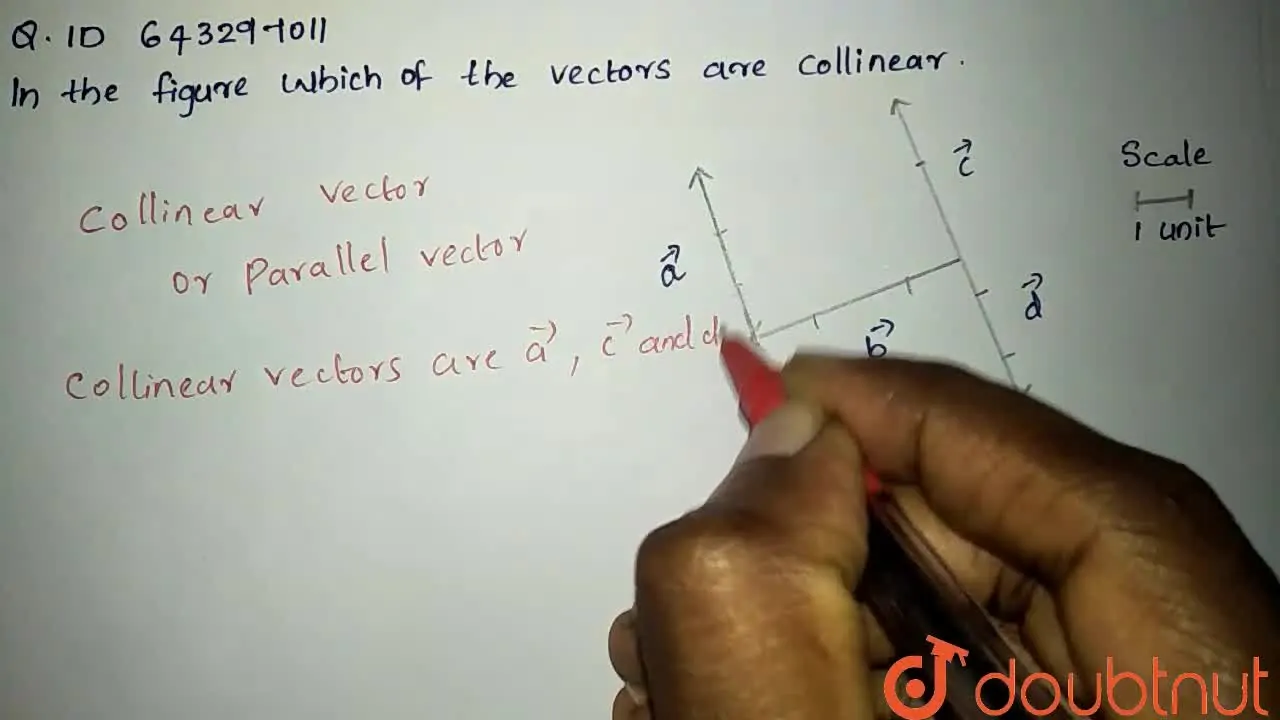 Q. ID 643297011
In the figure which of the vectors are collinear.
Collinear vector
or parallel vector
Collinear vectors are a⃗, c⃗ and d
a⃗
b⃗
c⃗
d⃗
Scale
1 unit
doubtnut